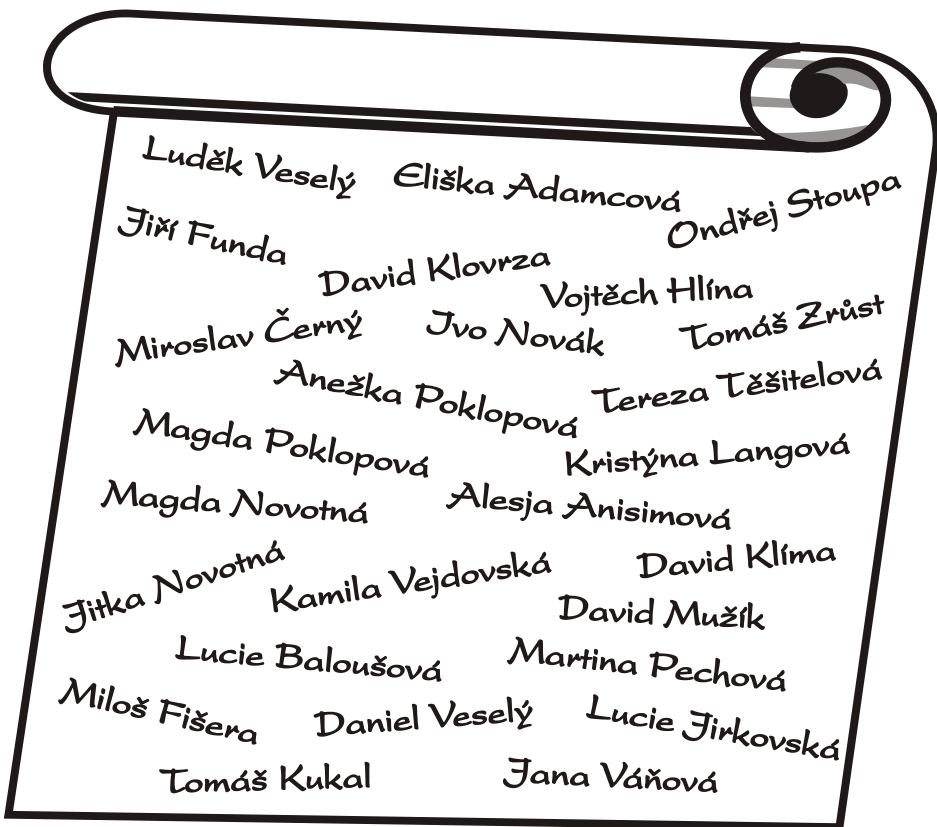 Luděk Veselý
Eliška Adamcová
Ondřej Stoupa
Jiří Funda
David Klovrza
Vojtěch Hlína
Miroslav Černý
Ivo Novák
Tomáš Zrůst
Anežka Poklopová
Tereza Těšitelová
Magda Poklopová
Kristýna Langová
Magda Novotná
Alesja Anisimová
David Klíma
Jitka Novotná
Kamila Vejdovská
David Mužík
Lucie Baloušová
Martina Pechová
Miloš Fišera
Daniel Veselý
Lucie Jirkovská
Tomáš Kukal
Jana Váňová